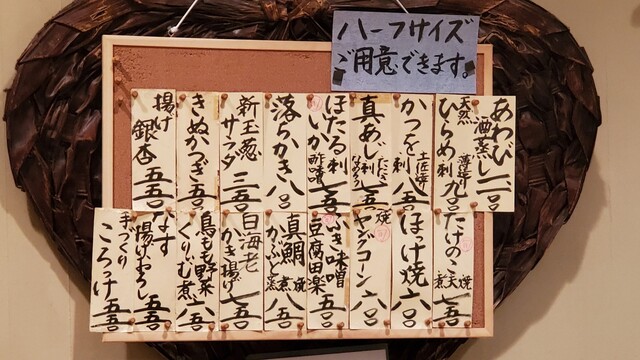 ハーフサイズ
ご用意できます。
あわび酒蒸し 一二〇
天然ひらめ 薄造り 刺 九〇
かつを刺 土佐造り 八五〇
真あじ刺 たたき なめろう 七五〇
ほたるいか 刺 酢味噌 七五〇
落らかき 八〇
新玉葱サラダ 三五〇
きぬかつぎ 五五〇
揚げ銀杏 五五〇
たけのこ 焼 天 煮 七五〇
ほっけ焼 六〇
焼ヤングコーン 六〇
ふき味噌豆腐田楽 五五〇
真鯛かぶと 焼 煮 蒸 八五〇
白海老かき揚げ 七五〇
鳥もも野菜くりぃむ煮 六五〇
なす揚げおろし 五五〇
手づくりころっけ 五五〇